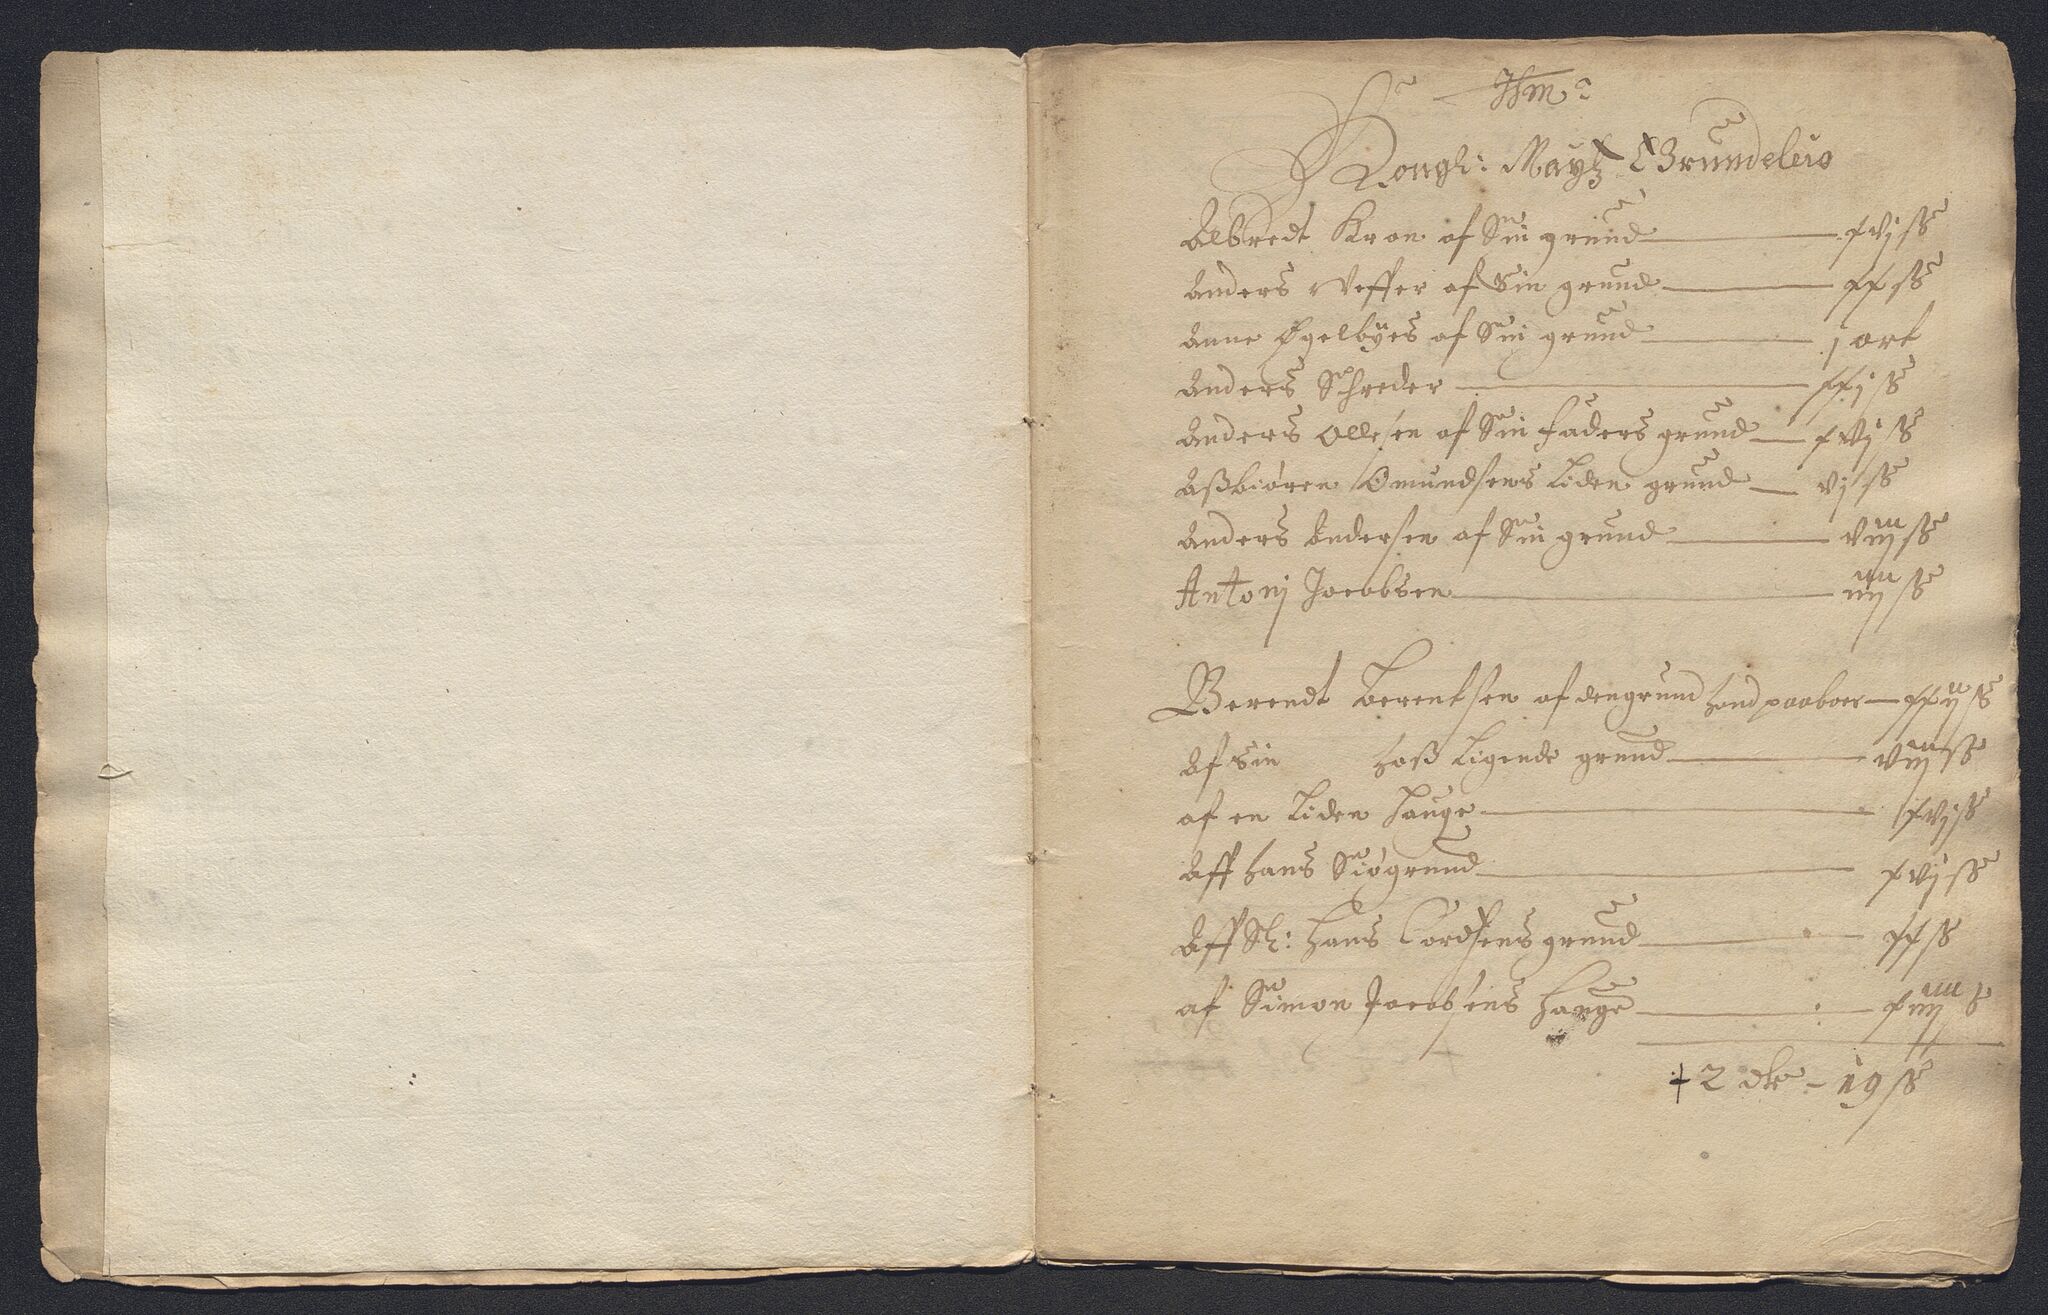 Jhm:
Kongl: Maytz Grundeleie
Albredt Kron af Sin grund xvj ß
Anders Veffer af Sin grund xx ß
Anne Øgelbÿes af Sin grund j ort
Anders Schreder xxj ß
Anders Ollesen af Sin faders grund xvj ß
Aßbiøren Omundsens Liden grund vj ß
Anders Andersen af Sin grund viij ß
Antonj Jacobsen iiij ß
Berendt Berentsen af den grund hand paaboer xxij ß
Af sin hoß Ligende grund viij ß
af en Liden hauge xvj ß
Aff hans Siøgrund xvj ß
Aff Sl: Hans Cordsens grund xx ß
af Simon Jacobsens hauge xiiij ß
2 dlr - 19 ß